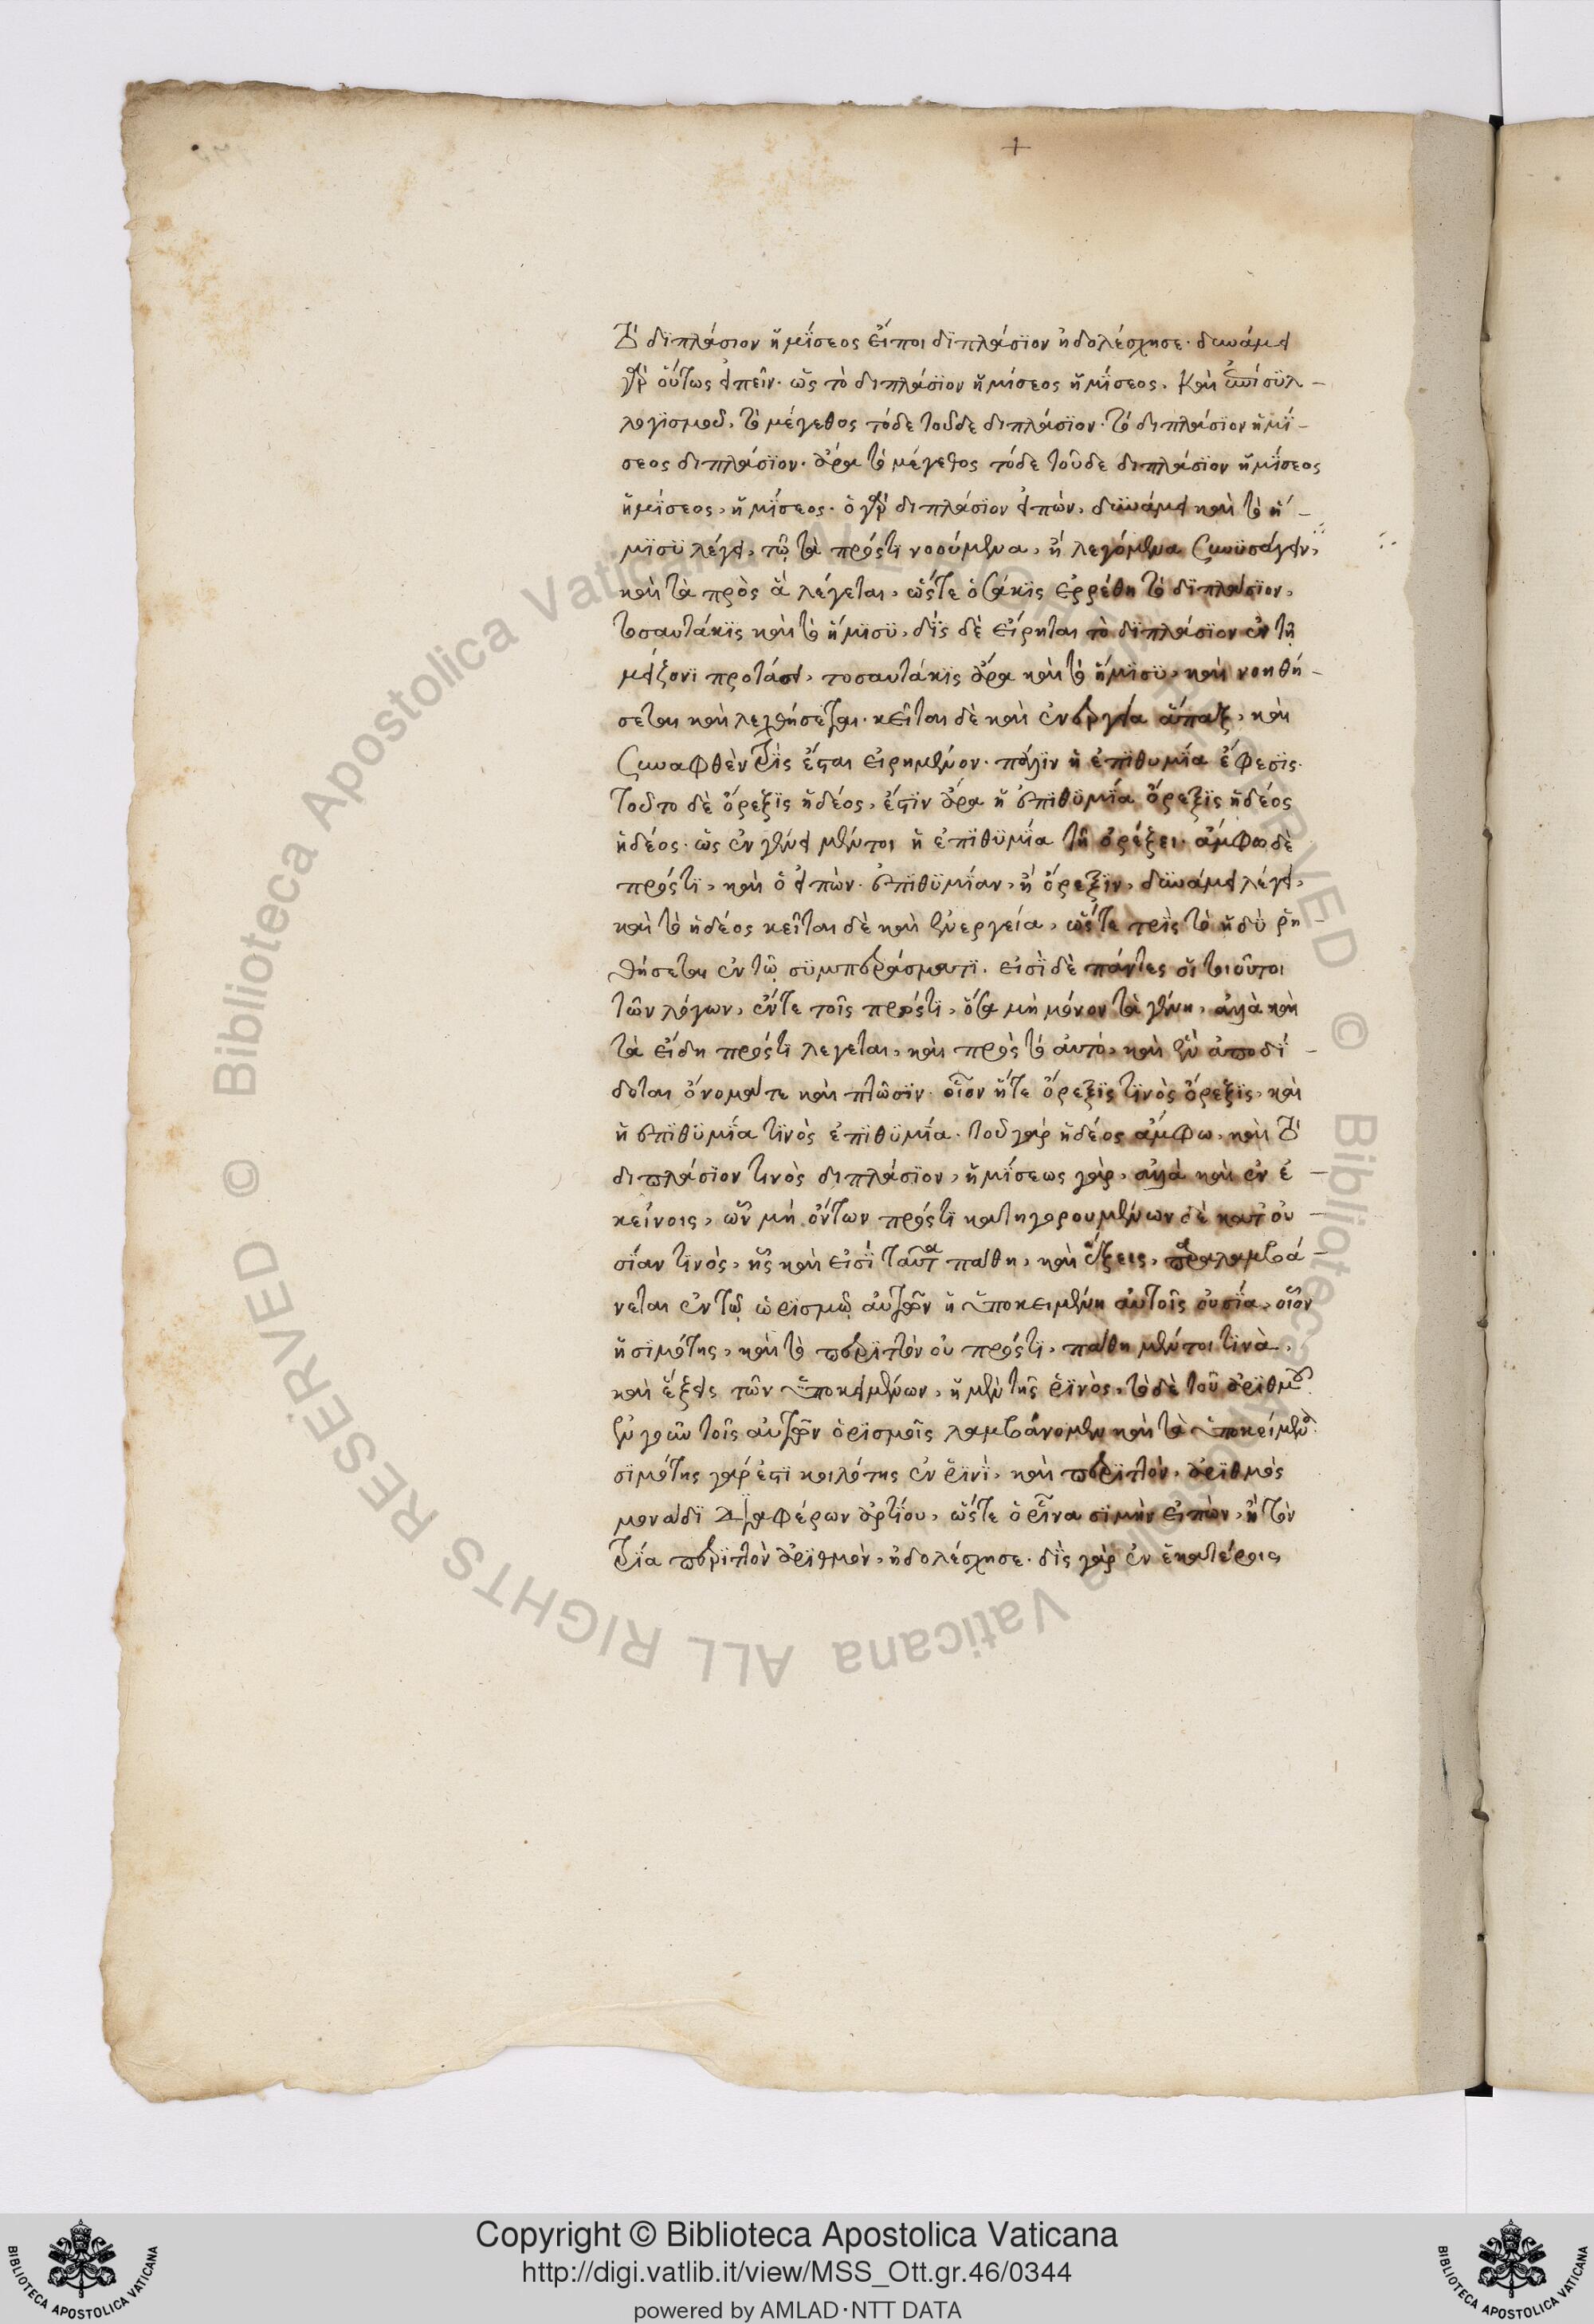 +
τὸ διπλάσιον ἡμίσεος εἴποι διπλάσιον ἠδολέσχησε· δυνάμει
γὰρ οὕτως εἰπεῖν· ὡς τὸ διπλάσιον ἡμίσεος ἡμίσεος. Καὶ ἐπὶ συλ-
λογισμοῦ, τὸ μέγεθος τόδε τοῦδε διπλάσιον· τὸ διπλάσιον ἡμί-
σεος διπλάσιον· ἄρα τὸ μέγεθος τόδε τοῦδε διπλάσιον ἡμίσεος
ἡμίσεος, ἡμίσεος· ὁ γὰρ διπλάσιον εἰπὼν, δυνάμει καὶ τὸ ἥ-
μισυ λέγει, τῷ τὰ πρός τι νοούμενα, ἢ λεγόμενα συνυπάγειν,
καὶ τὰ πρὸς ἃ λέγεται, ὥστε ὁσάκις ἐρρέθη τὸ διπλάσιον,
τοσαυτάκις καὶ τὸ ἥμισυ, δὶς δὲ εἴρηται τὸ διπλάσιον ἐν τῇ
μείζονι προτάσει, τοσαυτάκις ἄρα καὶ τὸ ἥμισυ, καὶ νοηθή-
σεται καὶ λεχθήσεται· κεῖται δὲ καὶ ἐνεργεία ἅπαξ, καὶ
συναφθὲν τρὶς ἔσται εἰρημένον· πάλιν ἡ ἐπιθυμία ἔφεσις·
τοῦτο δὲ ὄρεξις ἡδέος, ἔστιν ἄρα ἡ ἐπιθυμία ὄρεξις ἡδέος
ἡδέος· ὡς ἐν γένει μέντοι ἡ ἐπιθυμία τῇ ὀρέξει· ἄμφω δὲ
πρός τι, καὶ ὁ εἰπὼν· ἐπιθυμίαν, ἢ ὄρεξιν, δυνάμει λέγει,
καὶ τὸ ἡδέος κεῖται δὲ καὶ ἐνεργεία, ὥστε τρὶς τὸ ἡδὺ ῥη-
θήσεται ἐν τῷ συμπεράσματι. εἰσὶ δὲ πάντες οἱ τοιοῦτοι
τῶν λόγων, ἔν τε τοῖς πρός τι, ὅσα μὴ μόνον τὰ γένη, ἀλλὰ καὶ
τὰ εἴδη πρός τι λεγεται, καὶ πρὸς τὸ αὐτό, καὶ ἓν ἀποδί-
δοται ὄνομά τε καὶ πτῶσιν· οἷον ἥ τε ὄρεξις τινὸς ὄρεξις, καὶ
ἡ ἐπιθυμία τινὸς ἐπιθυμία· τοῦ γὰρ ἡδέος ἄμφω, καὶ τὸ
διπλάσιον τινὸς διπλάσιον, ἡμίσεως γὰρ, ἀλλὰ καὶ ἐν ἐ-
κείνοις, ὧν μὴ ὄντων πρός τι κατηγορουμένων δὲ κατ' οὐ-
σίαν τινὸς, ἧς καὶ εἰσὶ ταῦτα πάθη, καὶ ἕξεις, παραλαμβά-
νεται ἐν τῷ ὡρισμῷ αὐτῶν ἡ ὑποκειμένη αὐτοῖς οὐσία, οἷον
ἡ σιμότης, καὶ τὸ περιττὸν οὐ πρός τι, πάθη μέντοι τινὰ,
καὶ ἕξεις τῶν ὑποκειμένων, ἡ μὲν τῆς ῥινὸς, τὸ δὲ τοῦ ἀριθμοῦ·
ἐν γοῦν τοῖς αὐτῶν ὁρισμοῖς λαμβάνομεν καὶ τὰ ὑποκείμενα·
σιμότης γάρ ἐστι κοιλότης ἐν ῥινὶ, καὶ περιττὸν, ἀριθμὸς
μονάδι διαφέρων ἀρτίου, ὥστε ὁ ῥῖνα σιμὴν εἰπὼν, ἢ τὸν
τρία περιττὸν ἀριθμὸν, ἠδολέσχησε· δὶς γὰρ ἐν ἑκατέροις
Copyright © Biblioteca Apostolica Vaticana
http://digi.vatlib.it/view/MSS_Ott.gr.46/0344
powered by AMLAD·NTT DATA
BIBLIOTECA APOSTOLICA VATICANA
BIBLIOTECA APOSTOLICA VATICANA
© Biblioteca Apostolica Vaticana ALL RIGHTS RESERVED © Biblioteca Apostolica Vaticana ALL RIGHTS RESERVED